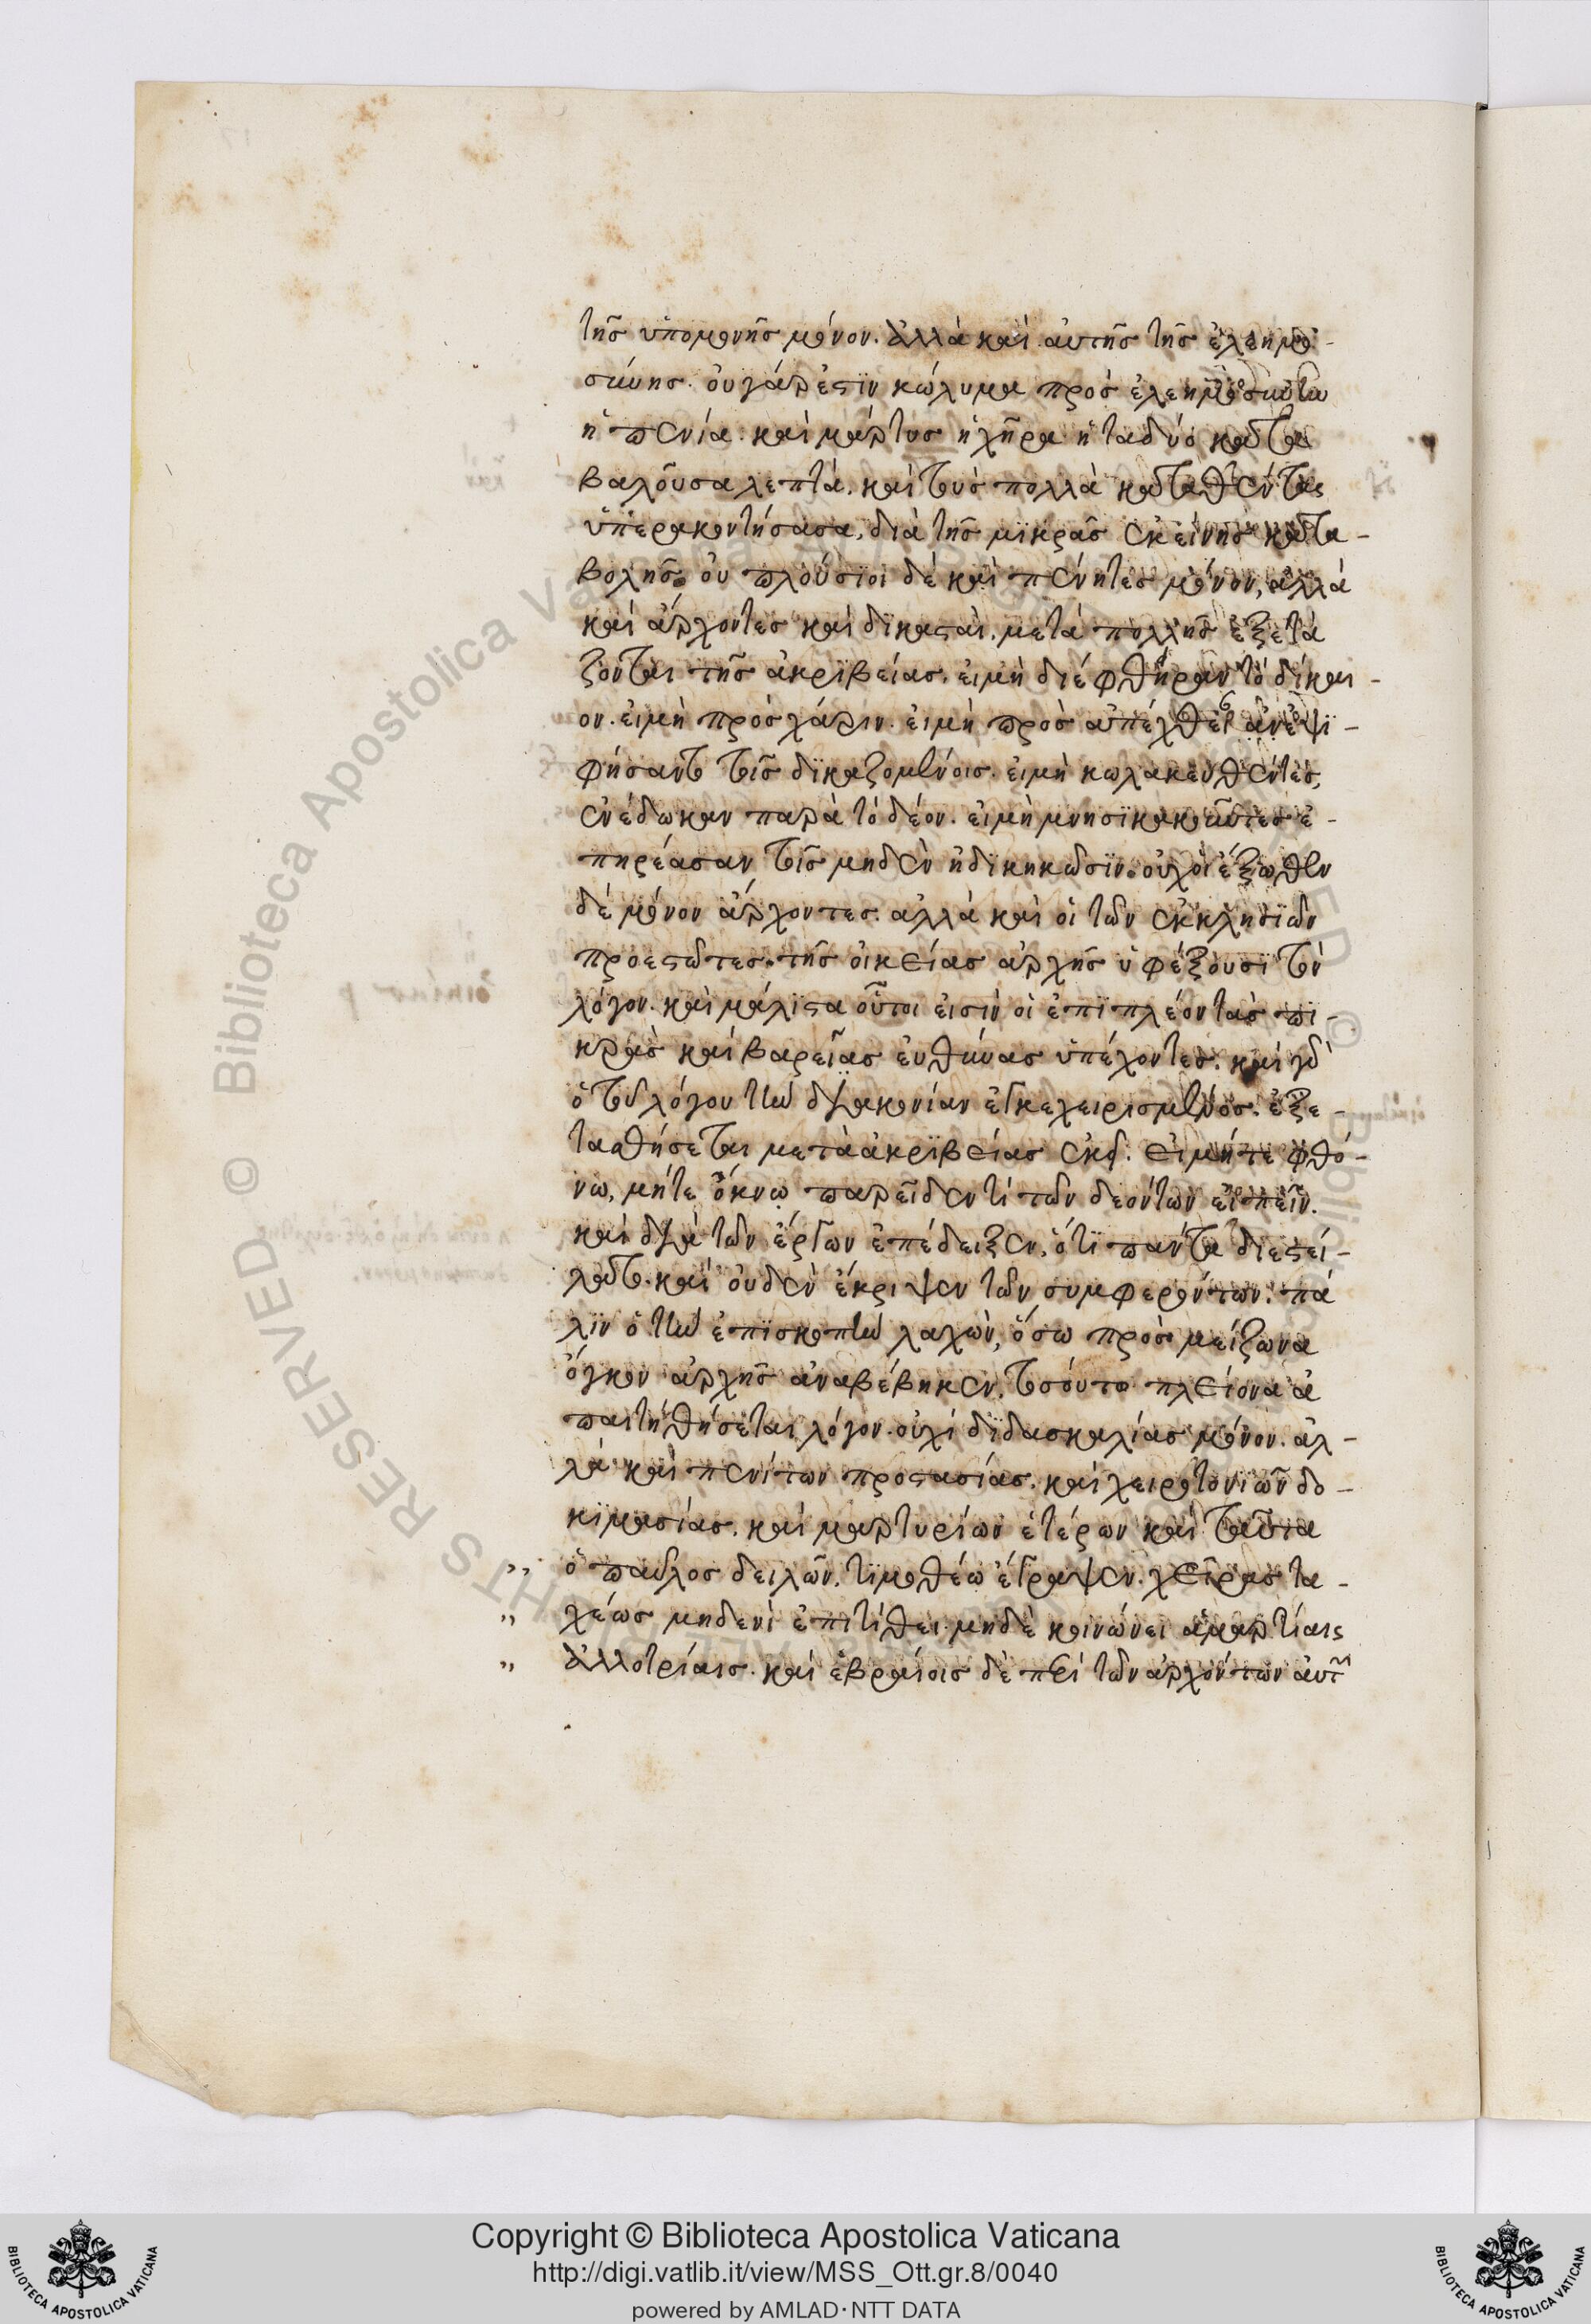 τῆς ὑπομονῆς μόνον. ἀλλὰ καὶ αὐτῆς τῆς ἐλεημο-
σύνης. οὐ γάρ ἐστϊν κώλυμα πρὸς ἐλεημοσύνην
ἡ πενία. καὶ μάρτυς ἡ χῆρα ἡ τὰ δύο κατα
βαλοῦσα λεπτά. καὶ τοὺς πολλὰ καταθέντας
ὑπερακοντήσασα, διὰ τῆς μϊκρᾶς ἐκείνης κατα-
βολῆς. οὐ πλούσϊοι δὲ καὶ πένητες μόνον, ἀλλὰ
καὶ ἄρχοντες καὶ δϊκασταὶ, μετὰ πολλῆς ἐξετά
ζονται τῆς ἀκρϊβείας. εἰ μὴ διέφθηραν τὸ δίκαι-
ον. εἰ μὴ πρὸς χάριν. εἰ μὴ πρὸς ἀπέχθει ἀνεψϊ-
φήσαντο τοῖς δϊκαζομένοις. εἰ μὴ κολακευθέντες,
ἐνέδωκαν παρὰ τὸ δέον. εἰ μὴ μνησϊκακοῦντες ἐ-
πηρέασαν τοῖς μηδὲν ἠδικηκόσϊν. οὐχ οἱ ἔξωθεν
δὲ μόνον ἄρχοντες. ἀλλὰ καὶ οἱ τῶν ἐκκλησϊῶν
προεστῶτες. τῆς οἰκείας ἀρχῆς ὑφέξουσϊ τὸν
λόγον. καὶ μάλϊστα οὗτοι εἰσὶν οἱ ἐπϊπλέον τὰς πϊ-
κρὰς καὶ βαρεῖας εὐθύνας ὑπέχοντες. καὶ γὰρ
ὁ τοῦ λόγου τὴν δϊακονίαν ἐγκεχειρισμένος. ἐξε-
τασθήσεται μετὰ ἀκρϊβείας ἐκεῖ. εἰ μήτε φθό-
νω, μήτε ὄκνω παρεῖδεν τί τῶν δεόντων εἰπεῖν.
καὶ δϊὰ τῶν ἔργων ἐπέδειξεν, ὅτϊ πάντα διεστεί-
λατο. καὶ οὐδὲν ἔκρυψεν τῶν συμφερόντων. πά
λϊν ὁ τὴν ἐπϊσκοπὴν λαχὼν, ὅσω πρὸς μείζωνα
ὄγκον ἀρχῆς ἀναβέβηκεν, τοσοῦτο πλείονα ἀ
παιτηθήσεται λόγον. οὐχὶ δϊδασκαλίας μόνον. ἀλ-
λὰ καὶ πενήτων προστασίας. καὶ χειροτονϊῶν δο-
κϊμασίας. καὶ μαρτυρίων ἑτέρων καὶ ταῦτα
ὁ παῦλος δειλῶν. τϊμοθέω ἔγραψεν. χεῖρας τα-
χέως μηδενὶ ἐπιτίθει. μηδὲ κοινώνει ἁμαρτίαις
ἀλλοτρίαις. καὶ ἑβραίοις δὲ περὶ τῶν ἀρχόντων αὐτῶν
Copyright © Biblioteca Apostolica Vaticana
http://digi.vatlib.it/view/MSS_Ott.gr.8/0040
powered by AMLAD·NTT DATA